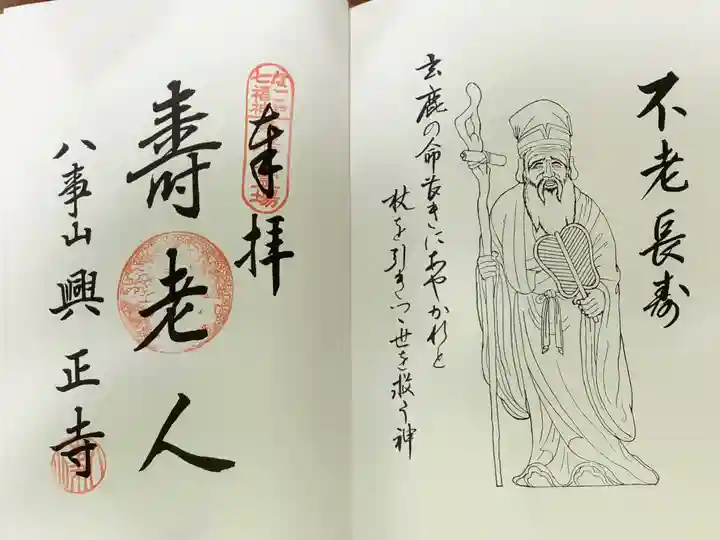 不老長寿
玄鹿の命長きにあやかれと
杖を引きつつ世を救う神
奉拝
なごや
七福神
霊場
壽老人
八事山興正寺